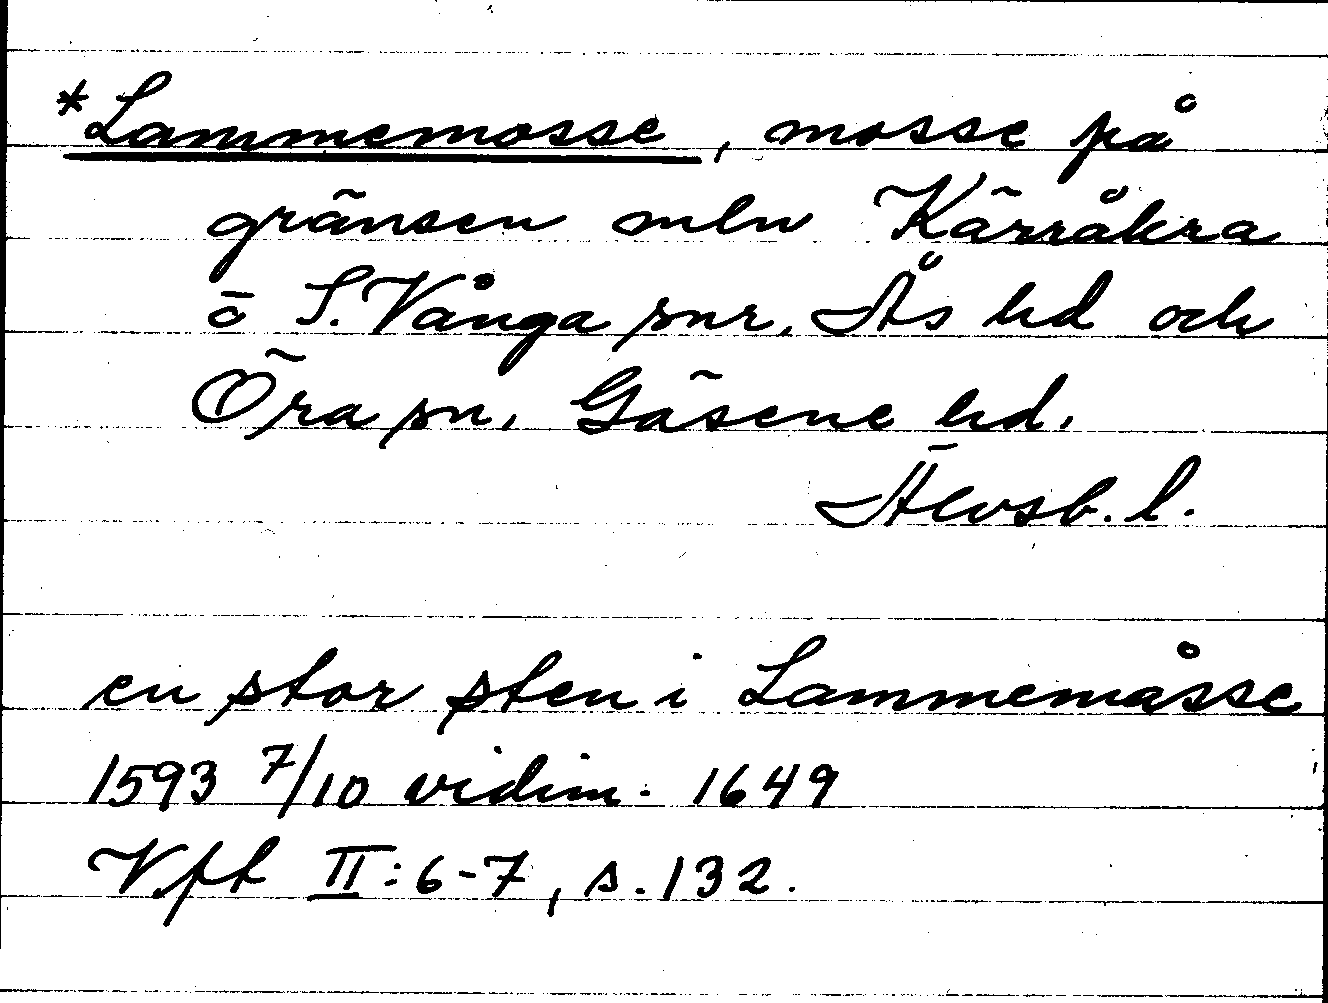 *Lammemosse, mosse på
gränsen mln Kärråkra
o S. Vånga snr, Ås hd och
Öra sn, Gäsene hd,
Älvsb. l.
en stor sten i Lammemåsse
1593 7/10 vidim. 1649
Vft II:6-7, s. 132.